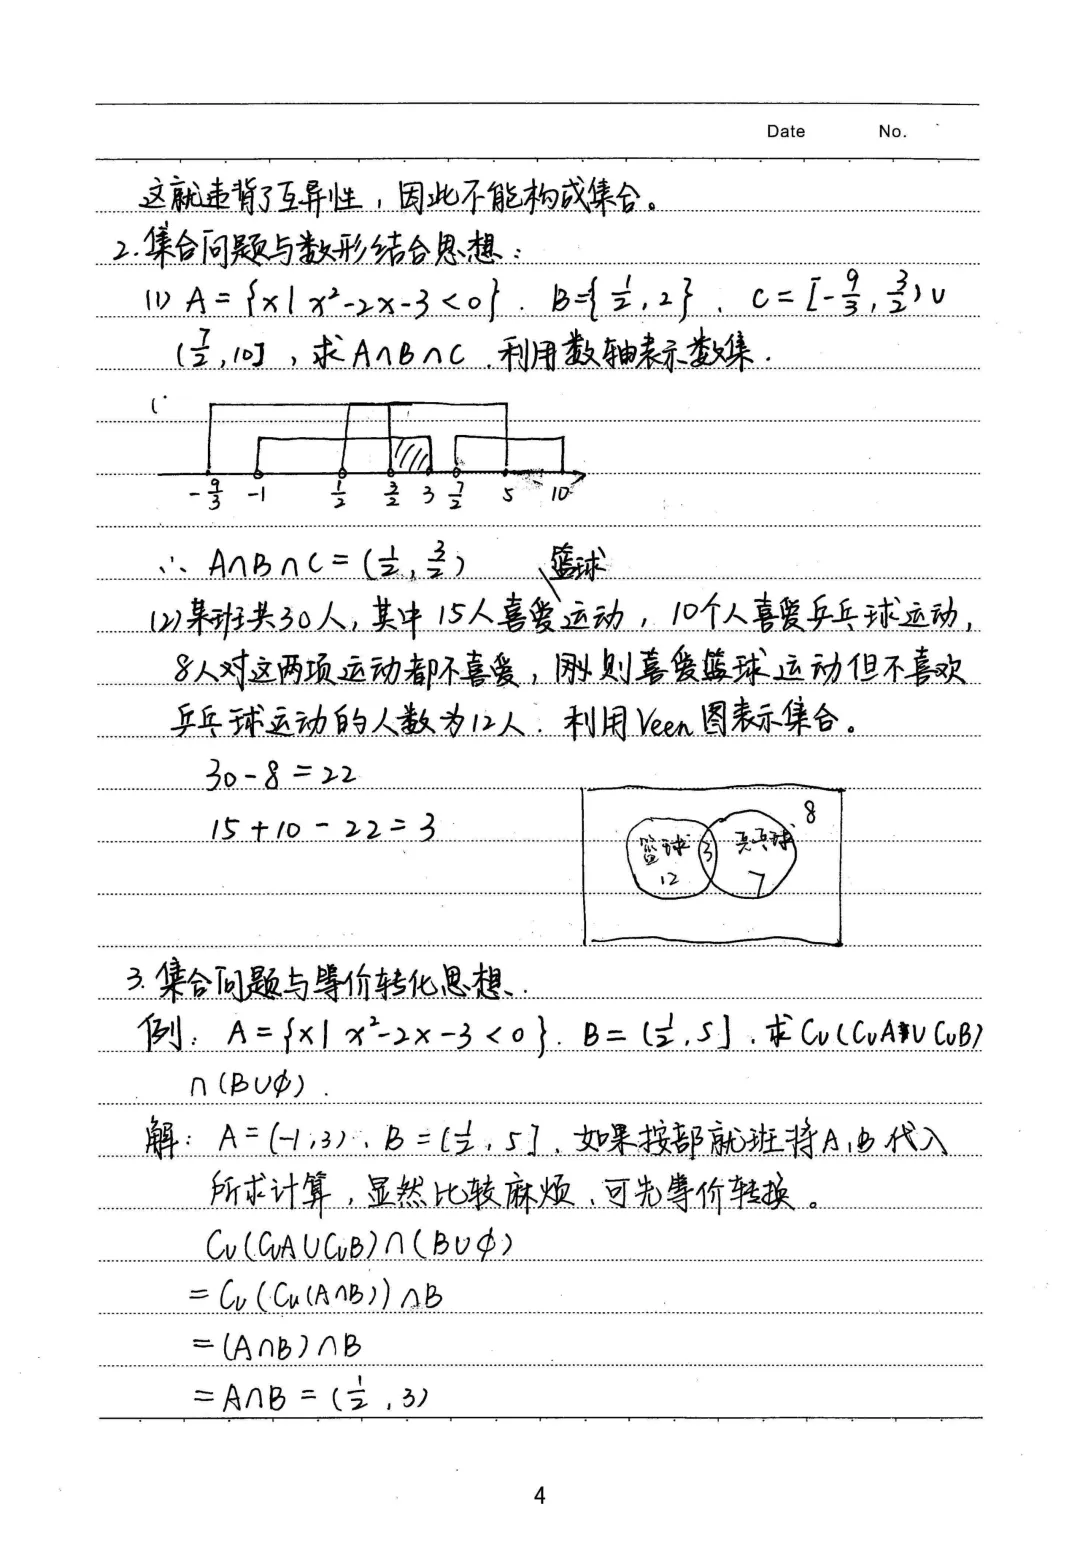 Date No.
这就违背了互异性，因此不能构成集合。
2.集合问题与数形结合思想：
(1) A={x|x²-2x-3<0}. B={½,2}. C=[-9/3,3/2)∪
(7/2,10],求A∩B∩C.利用数轴表示数集.
(
-9/3 -1 1/2 3/2 3 7/2 5 10
∴ A∩B∩C=(1/2,3/2) 篮球
(2)某班共30人,其中15人喜爱运动，10个人喜爱乒乓球运动,
8人对这两项运动都不喜爱，则喜爱篮球运动但不喜欢
乒乓球运动的人数为12人.利用Veen图表示集合。
30-8=22
15+10-22=3
8
篮球 3 乒乓球
12 7
3.集合问题与等价转化思想.
例：A={x|x²-2x-3<0}.B=(1/2,5].求C∪(C∪A∪C∪B)
∩(B∪φ).
解：A=(-1,3)、B=(1/2,5]、如果按部就班将A、B代入
所求计算，显然比较麻烦、可先等价转换。
C∪(C∪A∪C∪B)∩(B∪φ)
=C∪(Cu(A∩B))∩B
=(A∩B)∩B
=A∩B=(1/2,3)
4